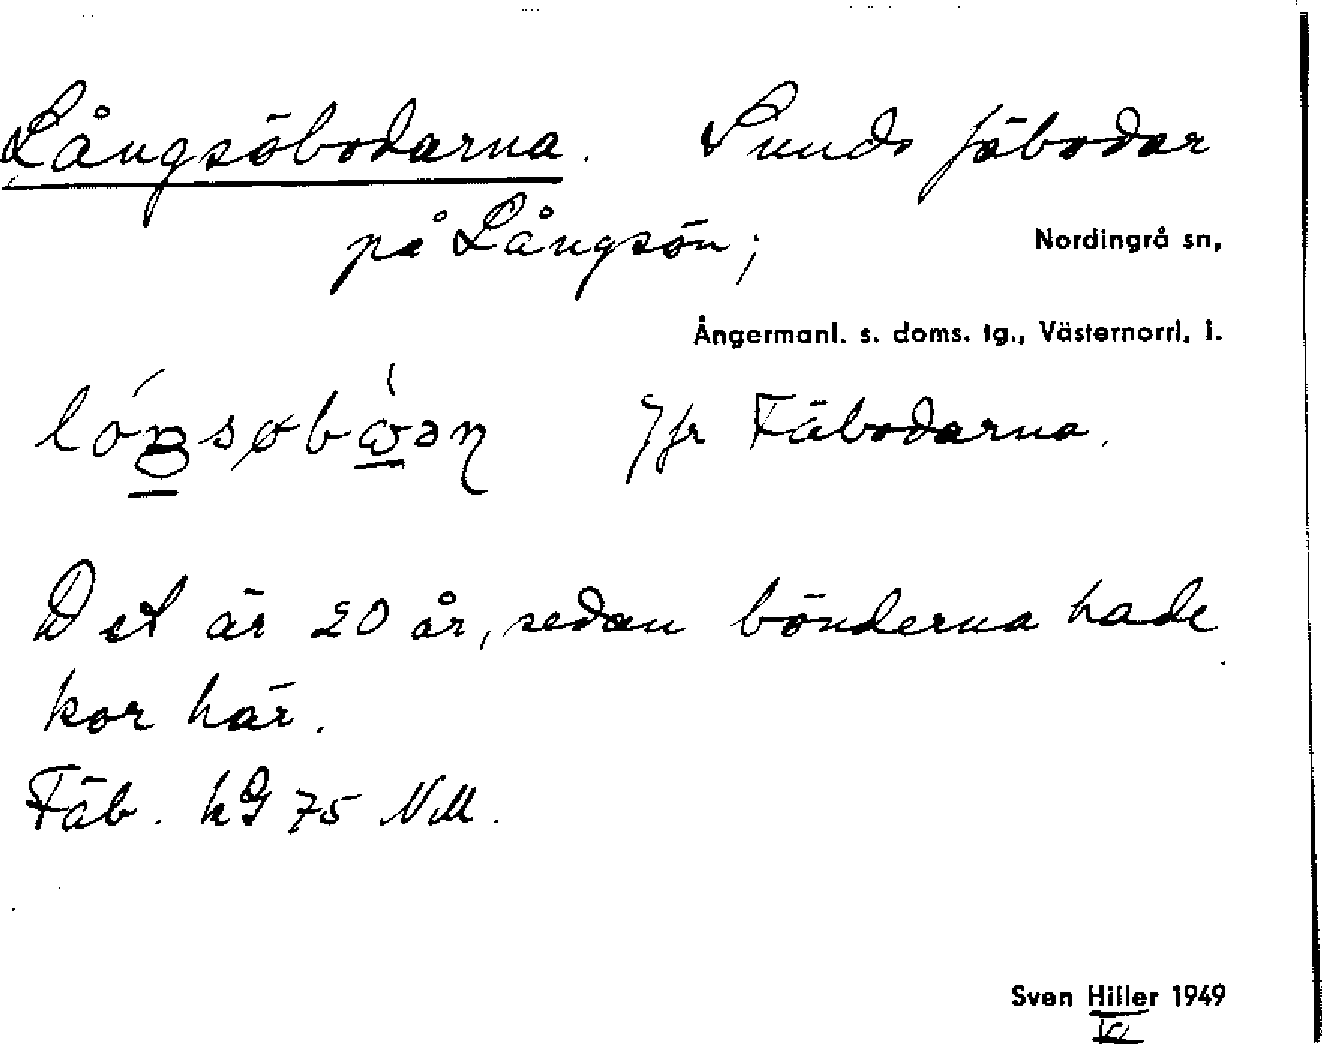 Långsöbodarna. Sunds fäbodar
på Långsön;
Nordingrå sn,
Ångermanl. s. doms. tg., Västernorrl. l.
Jfr Fäbodarna.
Det är 20 år, sedan bönderna hade
kor här.
Fäb. hG 75 NM.
Sven Hiller 1949